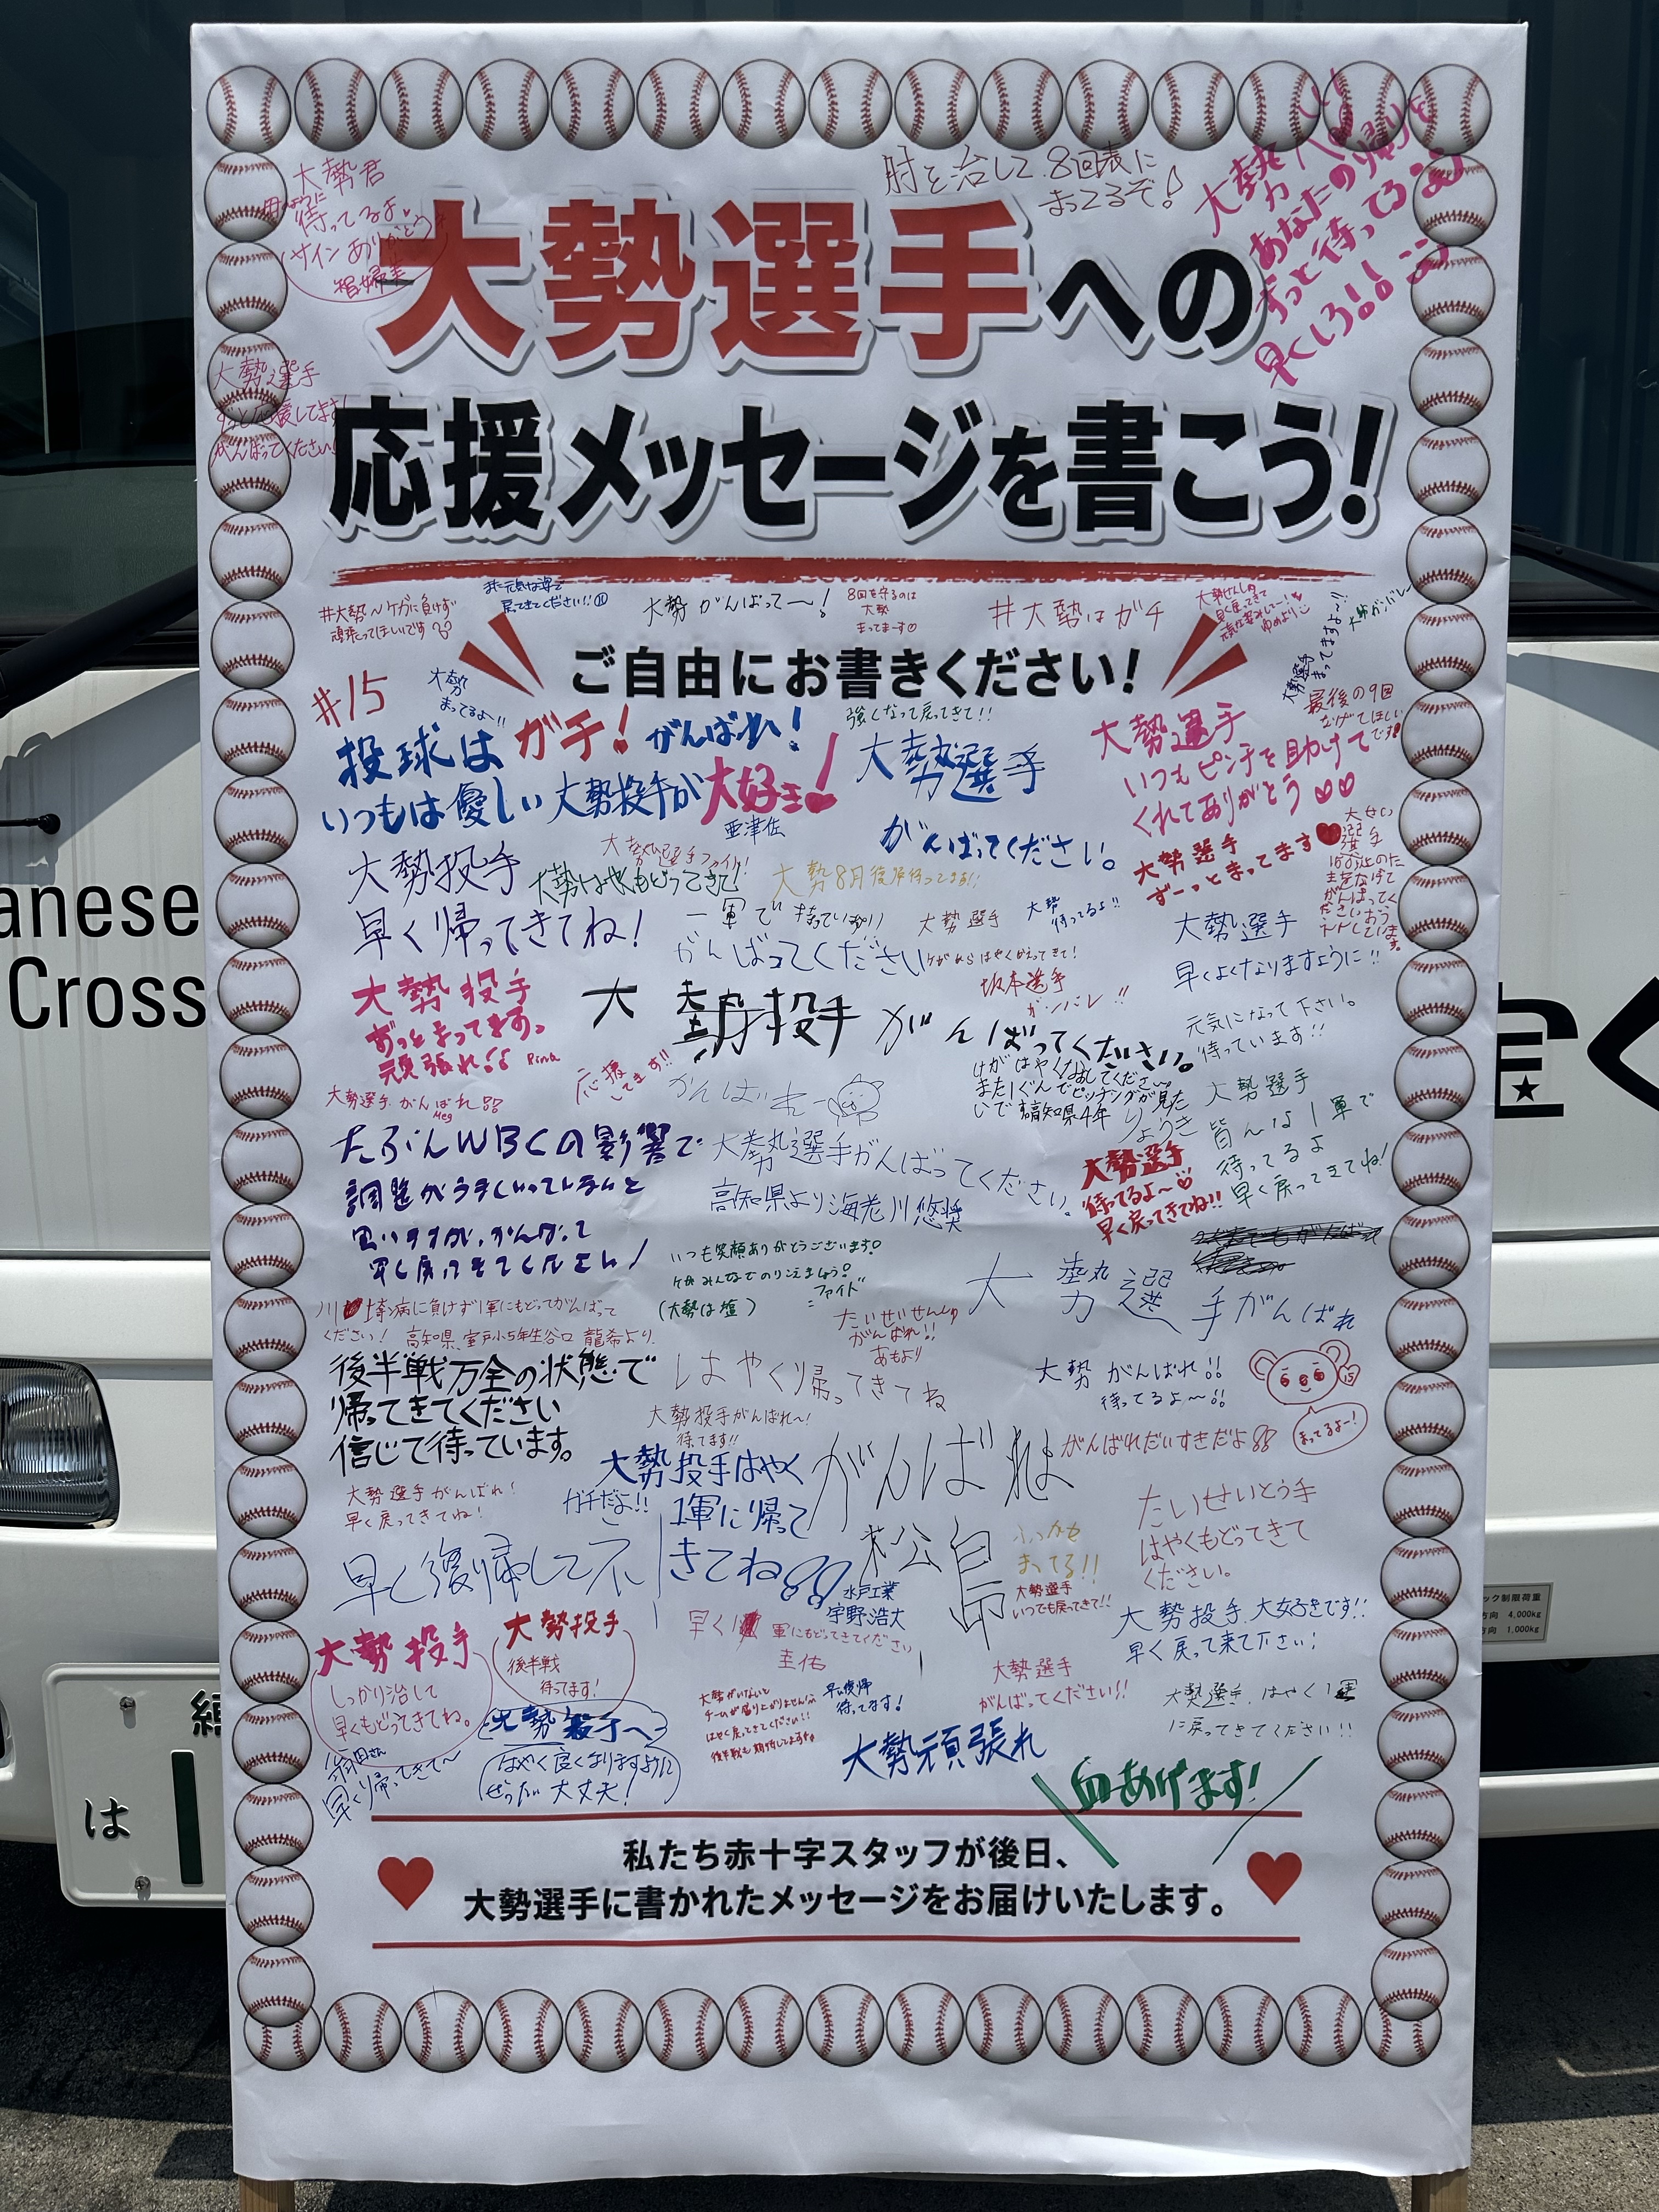 肘を治して、8回表に
まってるぞ!
大勢君
待ってるよ
サインありがとう
大勢へ
あなたの帰りを
ずっと待ってる
早くしろ!!
大勢選手への
大勢選手
ずっと応援してます!
がんばってください!
応援メッセージを書こう!
#大勢〜ケガに負けず
頑張ってほしいです
元気な姿で
戻ってきてください!!
大勢がんばって〜!
8回を守るのは
大勢
まってまーす
#大勢はガチ
大勢ガンバレ
大勢選手
まってますよ〜!!
ご自由にお書きください!
#15
大勢
まってるよ!!
投球はガチ!がんばれ!
いつもは優しい大勢投手が大好き!
亜津佐
強くなって戻ってきて!!
大勢選手
がんばってください。
大勢選手
いつもピンチを助けて
くれてありがとう♡♡
最後の9回
なげてほしい
です!
大勢選手
ずーっとまってます♥
大勢投手
早く帰ってきてね!
大勢選手ファイト!
大勢はやくもどってきて
大勢8月復帰待ってます!!
一軍で待っている
がんばってください
大勢選手
けがからはやくかえってきて!
大勢
待ってるよ!!
大勢選手
早くよくなりますように!!
坂本選手
ガンバレ!!
大勢投手
ずっとまってます。
頑張れ!! Rina
大 勢投手 がんばってください。
元気になって下さい。
待っています!!
応援
してます!!
がんばれー
大勢選手がんばれ!!
Meg
けがはやくなおしてください。
また1ぐんでピッチングが見た
いです 高知県4年 りょうき
大勢選手
皆んな1軍で
待ってるよ
早く戻ってきてね!
たぶんWBCの影響で
調整がうまくいっていないと
思いますが、がんばって
早く戻ってきてください!
大勢選手がんばってください。
高知県より海老川悠奨
大勢選手
待ってるよ〜♡
早く戻ってきてね!!
いつも笑顔ありがとうございます!
ケガみんなでのりこえましょう!
ファイト
(大勢は 塩)
大 勢選手がんばれ
病に負けず1軍にもどってがんばって
ください! 高知県、室戸小5年生谷口 龍希より
たいせいせんしゅ
がんばれ!!
あもより
後半戦万全の状態で
帰ってきてください
信じて待っています。
はやく帰ってきてね
大勢 がんばれ!!
待ってるよ〜!!
15
まってるよー!
大勢投手がんばれ〜!
待ってます!!
大勢投手はやく
1軍に帰って
きてね!!
がんばれよ
松島
がんばれだいすきだよ
大勢選手がんばれ!
早く戻ってきてね!
ガチだよ!!
たいせいとう手
はやくもどってきて
ください。
早く復帰してネ!
ふっかつ
まってる!!
大勢選手
いつでも戻ってきて!!
水戸工業
宇野浩大
大勢投手、大好きです!!
早く戻って来て下さい!
大勢投手
しっかり治して
早くもどってきてね。
大勢投手
後半戦
待ってます!
早く1軍にもどってきてください
圭佑
大勢選手
がんばってください!!
大勢選手、はやく1軍
に戻ってきてください!!
大勢がいないと
チームが盛り上がりません
はやく戻ってきてください!!
後半戦も期待してます
早い復帰
待ってます!
大勢投手へ
はやく良くなりますように
ぜったい大丈夫!
翁田さん
早く帰ってきて〜
大勢頑張れ
血あげます!
私たち赤十字スタッフが後日、
大勢選手に書かれたメッセージをお届けいたします。
anese
Cross
は
4,000kg
1,000kg